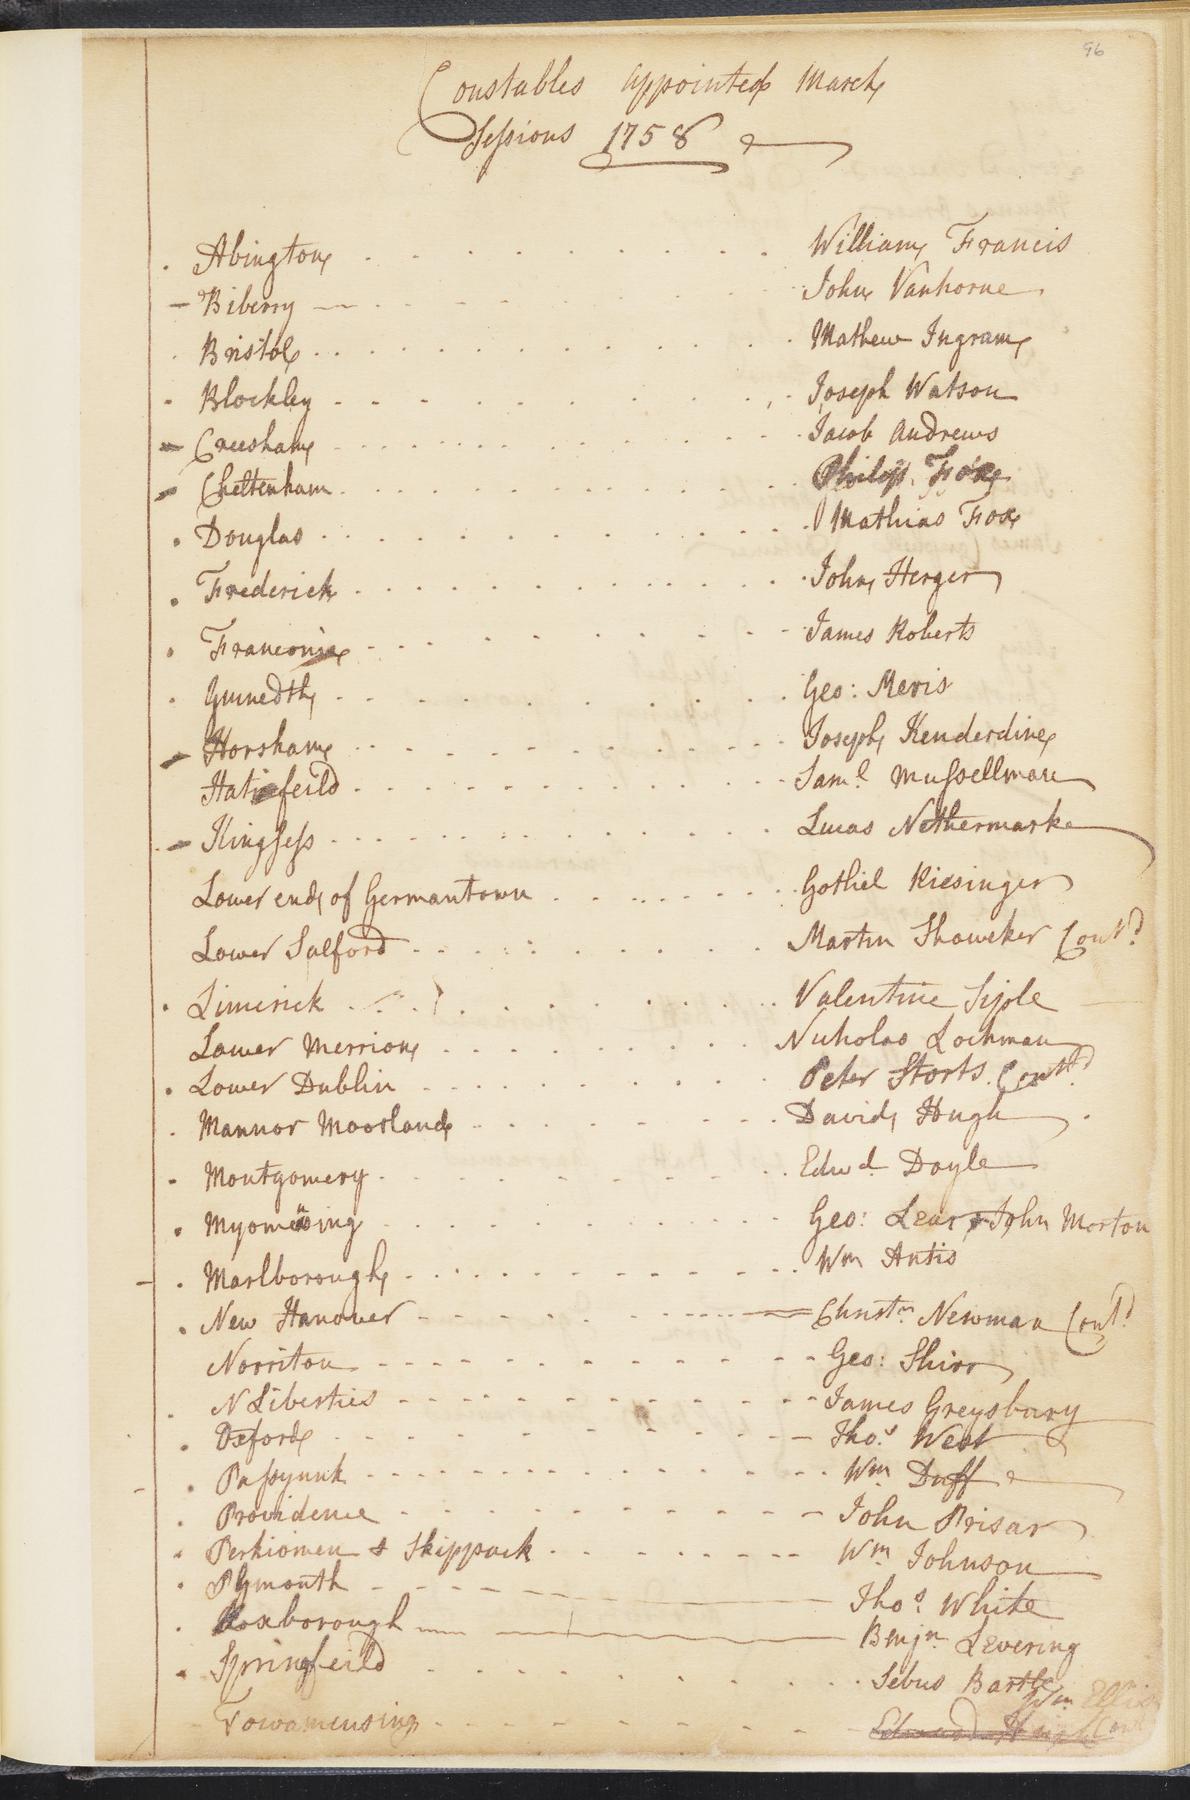 96
Constables appointed March
Sessions 1758
Abington William Francis
Biberry John Vanhorne
Bristol Mathew Ingram
Blockley Joseph Watson
Creesham Jacob Andrews
Cheltenham Philip Fox
Douglas Mathias Fox
Frederick John Herger
Franconia James Roberts
Gwinedth Geo: Meris
Horsham Joseph Kenderdine
Hatfeild Saml Mussellman
Kingsess Lucas Nethermarke
Lower end of Germantown Gothiel Kiesinger
Lower Salford Martin Showeker Contd
Limerick Valentine Siple
Lower Merrion Nicholas Lochman
Lower Dublin Peter Storts Contd
Mannor Moorland David Hough
Montgomery Edwd Doyle
Myomensing Geo: Lear John Morton
Marlborough Wm Antis
New Hanover Christn Newman Contd
Norriton Geo: Shirr
N Liberties James Greysbury
Oxford Thos West
Passyunk Wm Duff
Providence John Prisar
Perkiomen & Skippack Wm Johnson
Plymouth Thos White
Roxborough Benjn Levering
Springfeild Sebus Bartle
Wm Ellis
Towamensing Edward Hugh